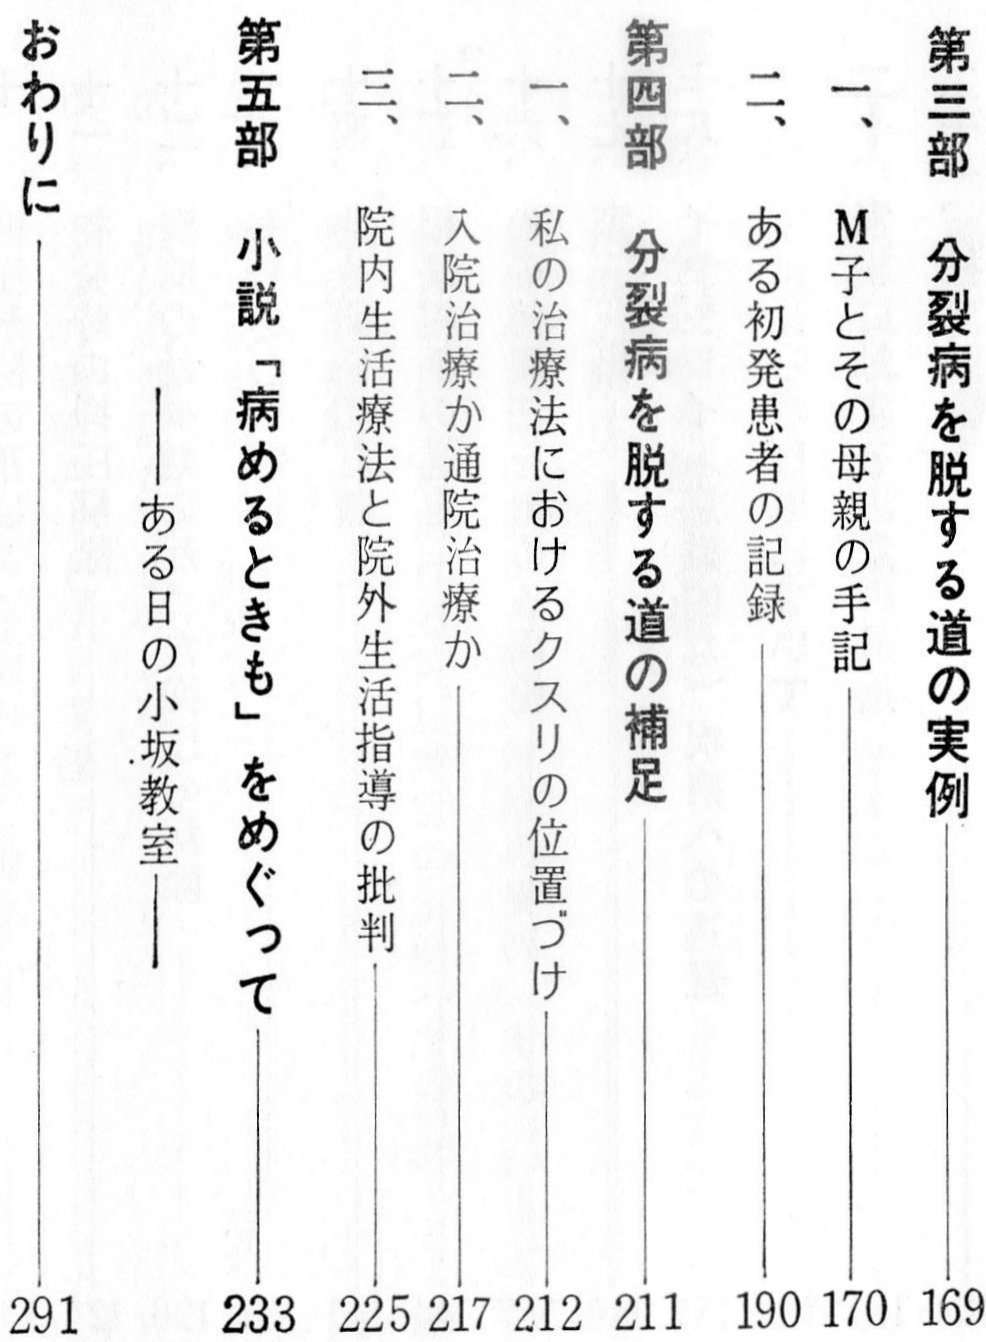 第三部　分裂病を脱する道の実例 169
一、　M子とその母親の手記 170
二、　ある初発患者の記録 190
第四部　分裂病を脱する道の補足 211
一、　私の治療法におけるクスリの位置づけ 212
二、　入院治療か通院治療か 217
三、　院内生活療法と院外生活指導の批判 225
第五部　小説「病めるときも」をめぐって 233
――ある日の小坂教室――
おわりに 291